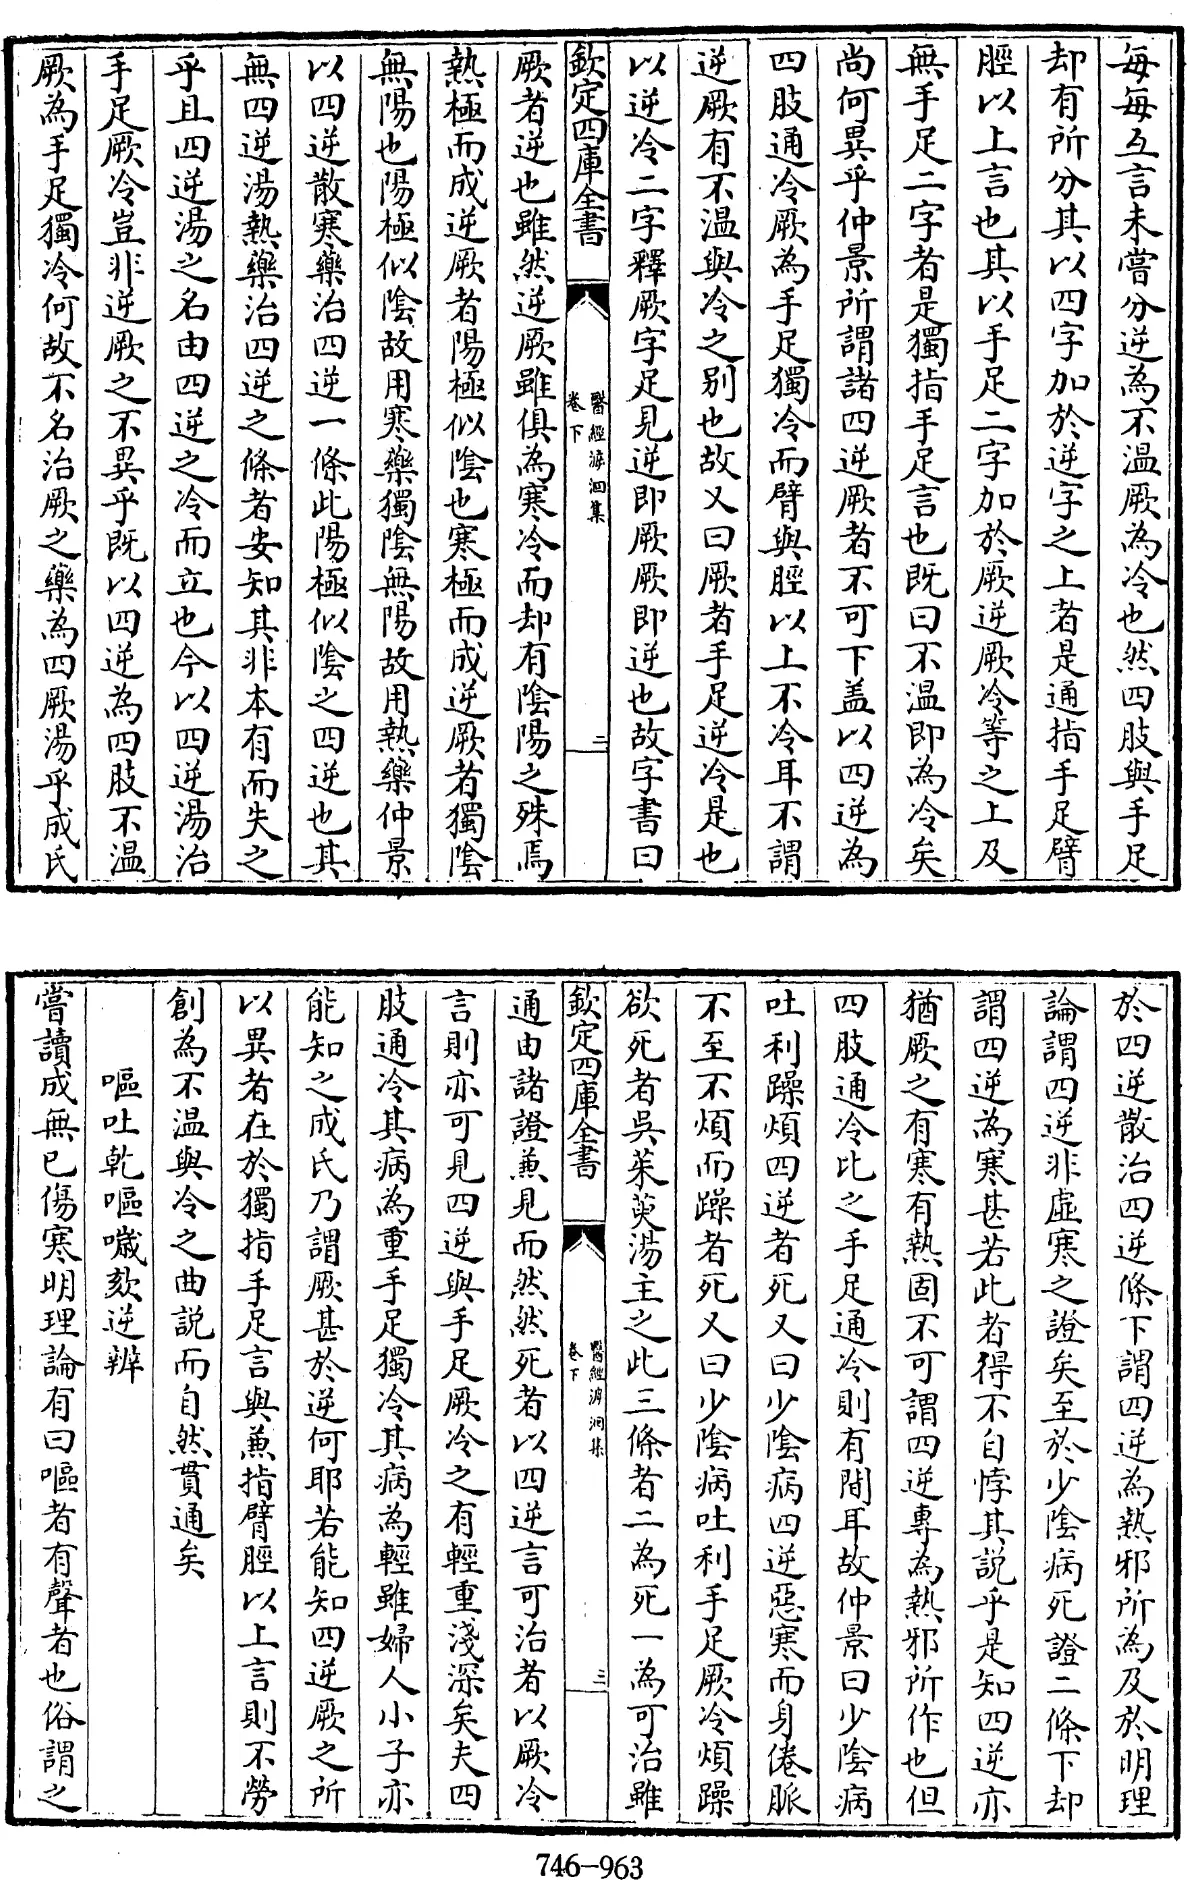 每每互言未嘗分逆為不温厥為冷也然四肢與手足
却有所分其以四字加於逆字之上者是通指手足臂
脛以上言也其以手足二字加於厥逆厥冷等之上及
無手足二字者是獨指手足言也既曰不温即為冷矣
尚何異乎仲景所謂諸四逆厥者不可下盖以四逆為
四肢通冷厥為手足獨冷而臂與脛以上不冷耳不謂
逆厥有不温與冷之别也故又曰厥者手足逆冷是也
以逆冷二字釋厥字足見逆即厥厥即逆也故字書曰
欽定四庫全書
醫經溯洄集
卷下
二
厥者逆也雖然逆厥雖俱為寒冷而却有隂陽之殊焉
熱極而成逆厥者陽極似隂也寒極而成逆厥者獨隂
無陽也陽極似隂故用寒藥獨隂無陽故用熱藥仲景
以四逆散寒藥治四逆一條此陽極似隂之四逆也其
無四逆湯熱藥治四逆之條者安知其非本有而失之
乎且四逆湯之名由四逆之冷而立也今以四逆湯治
手足厥冷豈非逆厥之不異乎既以四逆為四肢不温
厥為手足獨冷何故不名治厥之藥為四厥湯乎成氏
於四逆散治四逆條下謂四逆為熱邪所為及於明理
論謂四逆非虛寒之證矣至於少隂病死證二條下却
謂四逆為寒甚若此者得不自悖其説乎是知四逆亦
猶厥之有寒有熱固不可謂四逆專為熱邪所作也但
四肢通冷比之手足通冷則有間耳故仲景曰少隂病
吐利躁煩四逆者死又曰少隂病四逆惡寒而身倦脈
不至不煩而躁者死又曰少隂病吐利手足厥冷煩躁
欲死者吳茱萸湯主之此三條者二為死一為可治雖
欽定四庫全書
醫經溯洄集
卷下
三
通由諸證兼見而然然死者以四逆言可治者以厥冷
言則亦可見四逆與手足厥冷之有輕重淺深矣夫四
肢通冷其病為重手足獨冷其病為輕雖婦人小子亦
能知之成氏乃謂厥甚於逆何耶若能知四逆厥之所
以異者在於獨指手足言與兼指臂脛以上言則不勞
創為不温與冷之曲説而自然貫通矣
嘔吐乾嘔噦欬逆辨
嘗讀成無已傷寒明理論有曰嘔者有聲者也俗謂之
746-963